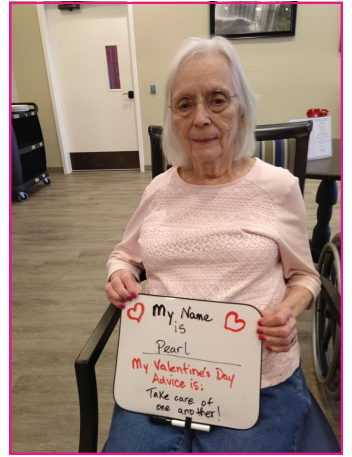 My Name
is
Pearl
My Valentine's Day
Advice is:
Take care of
one another!